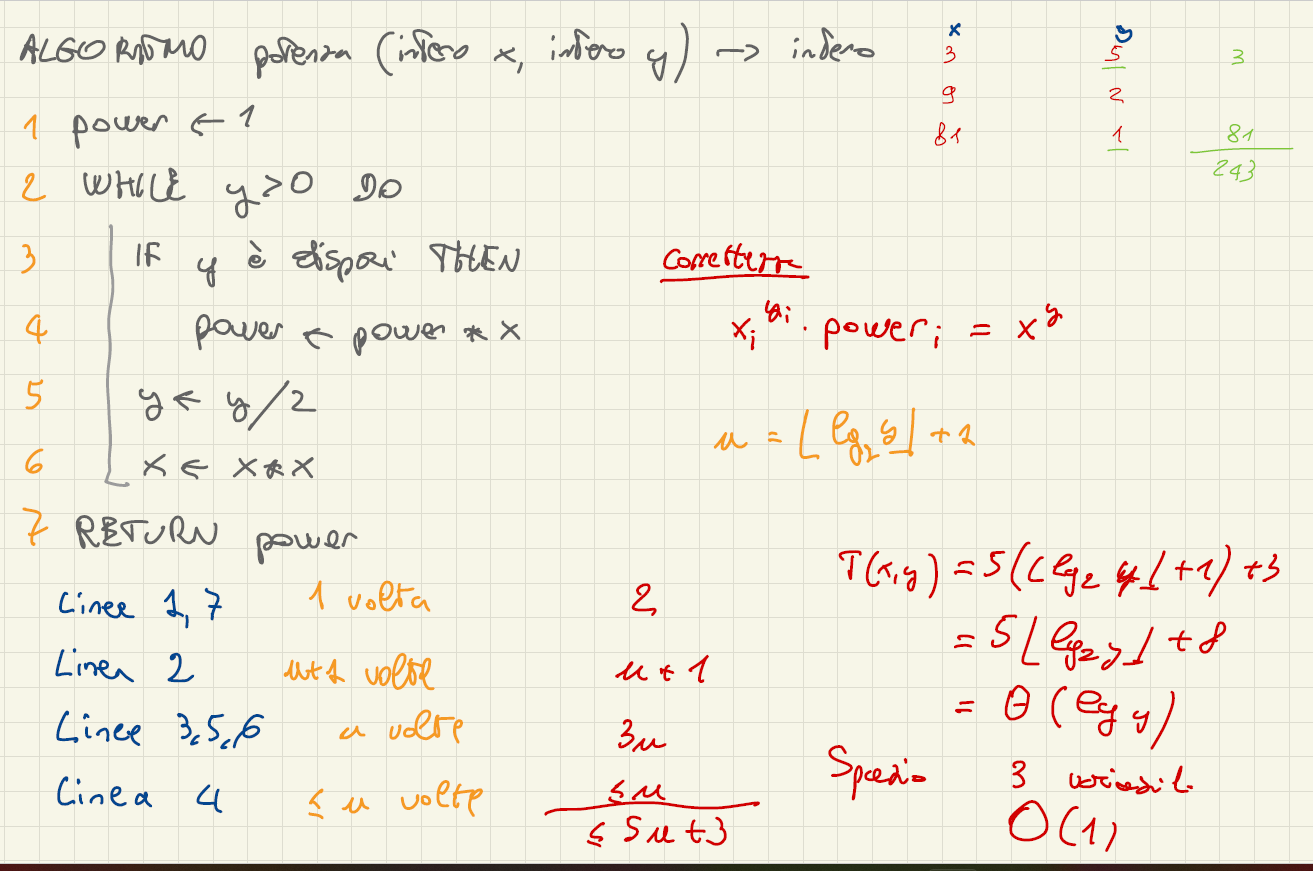 ALGORITMO potenza (intero x, intero y) → intero
x y
3 5 3
9 2
81 1 81
243
1 power ← 1
2 WHILE y > 0 DO
3 IF y è dispari THEN
4 power ← power * x
5 y ← y/2
6 x ← x * x
7 RETURN power
Correttezza
xᵢ^yᵢ · powerᵢ = x^y
n = ⌊lg₂ y⌋ + 1
Linee 1, 7 1 volta 2
Linea 2 n+1 volte n + 1
Linee 3,5,6 n volte 3n
Linea 4 ≤ n volte ≤ n
≤ 5n + 3
T(x,y) = 5(⌊lg₂ y⌋ + 1) + 3
= 5⌊lg₂ y⌋ + 8
= Θ(lg y)
Spazio 3 variabili
O(1)